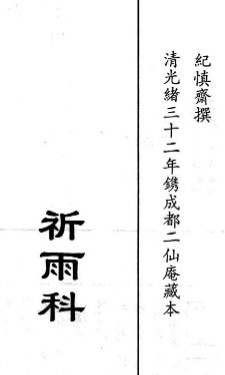 紀慎齋撰
清光緒三十二年鐫成都二仙庵藏本
祈雨科